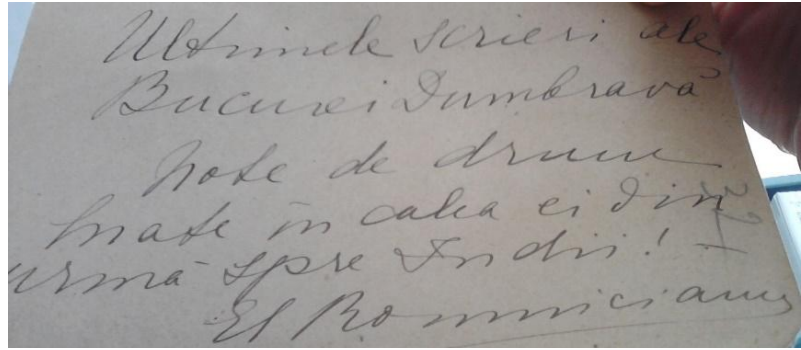 Ultimele scrieri ale
Bucurei Dumbravă
Note de drum
luate în calea ei din
urmă spre Indii!
El Romniciamu